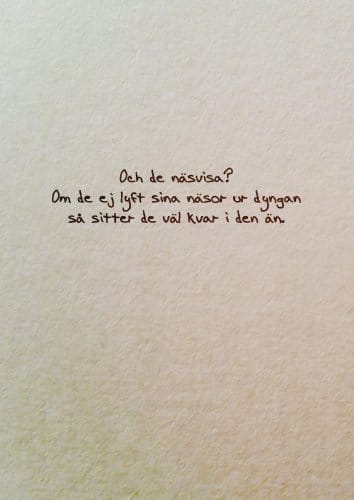 Och de näsvisa?
Om de ej lyft sina näsor ur dyngan
så sitter de väl kvar i den än.